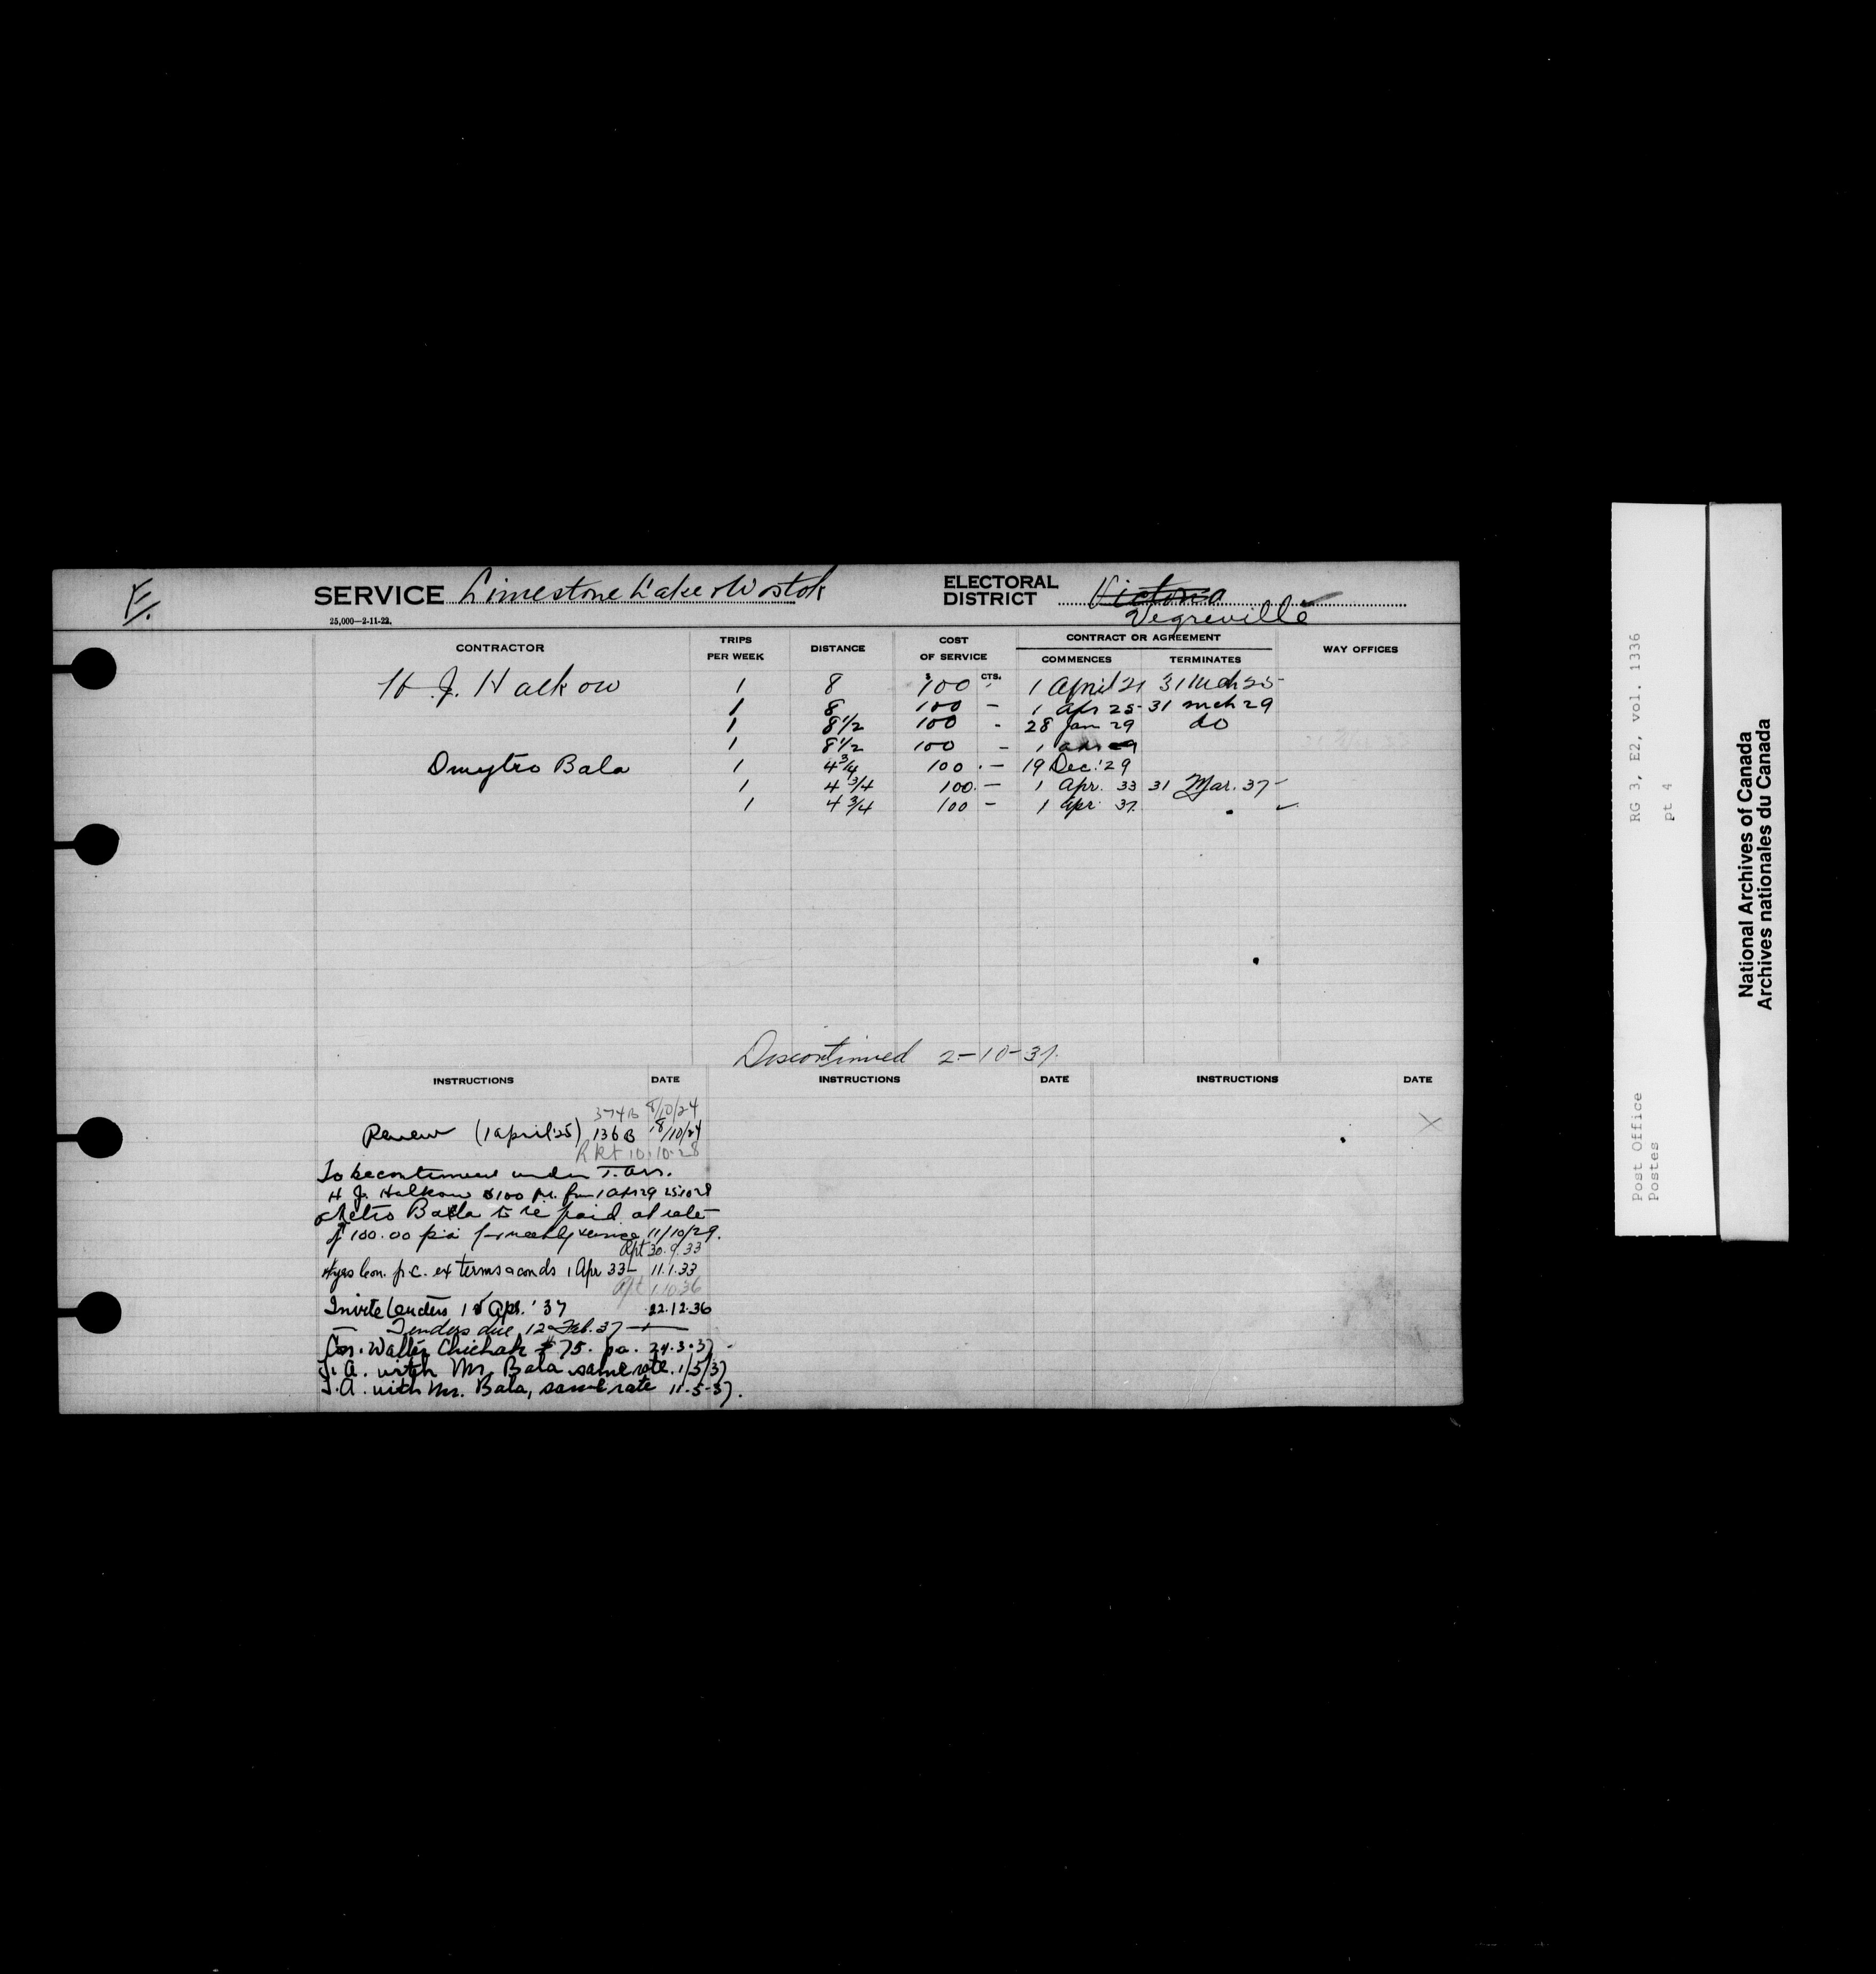 E.
SERVICE Limestone Lake & Wostok ELECTORAL DISTRICT Victoria
25,000—2-11-22. Vegreville
CONTRACTOR TRIPS PER WEEK DISTANCE COST OF SERVICE CONTRACT OR AGREEMENT WAY OFFICES
$ CTS. COMMENCES TERMINATES
H. J. Halkow 1 8 100 - 1 April 21 31 Mch 25
1 8 100 — 1 Apr 25 31 mch 29
1 8 1/2 100 - 28 Jan 29 do
1 8 1/2 100 — 1 apr 29
Dmytro Bala 1 4 3/4 100 . — 19 Dec. '29
1 4 3/4 100. — 1 Apr. 33 31 Mar. 37
1 4 3/4 100 — 1 Apr. 37.
Discontinued 2-10-37.
INSTRUCTIONS DATE INSTRUCTIONS DATE INSTRUCTIONS DATE
374B 8/10/24
Renew (1 April '25) 136B 18/10/24
Rpt 10.10.28
To be continued under T. Arr.
H J. Halkow $100 pa. from 1 Apr 29 25.10.28
Metro Balla to be paid at rate
of 100.00 p.a. for weekly service 11/10/29.
Rpt 30.9.33
4 yrs con. p.c. ex terms & conds 1 Apr 33 11.1.33
Rpt 1.10.36
Invite tenders 1 Apr. '37 22.12.36
Tenders due 12 Feb. 37
Con. Walter Chichak $75. pa. 24.3.37
T. A. with Mr. Bala same rate. 1/5/37
T.A. with Mr. Bala, same rate 11-5-37.
X
RG 3, E2, vol. 1336
pt 4
Post Office
Postes
National Archives of Canada
Archives nationales du Canada